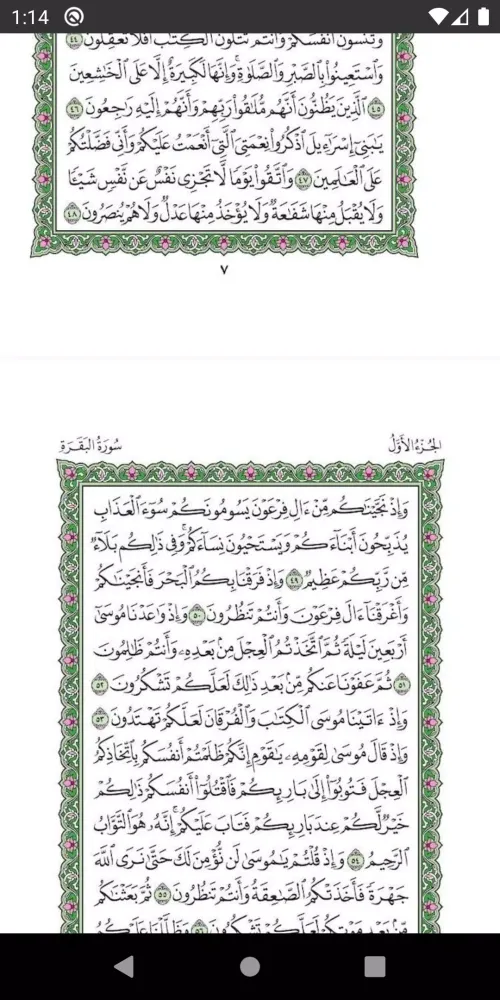 1:14
وَتَنسَوْنَ أَنفُسَكُمْ وَأَنتُمْ تَتْلُونَ الْكِتَٰبَ أَفَلَا تَعْقِلُونَ ٤٤
وَاسْتَعِينُوا بِالصَّبْرِ وَالصَّلَوٰةِ وَإِنَّهَا لَكَبِيرَةٌ إِلَّا عَلَى الْخَٰشِعِينَ
٤٥ الَّذِينَ يَظُنُّونَ أَنَّهُم مُّلَٰقُوا رَبِّهِمْ وَأَنَّهُمْ إِلَيْهِ رَٰجِعُونَ ٤٦
يَٰبَنِىٓ إِسْرَٰٓءِيلَ اذْكُرُوا نِعْمَتِىَ الَّتِىٓ أَنْعَمْتُ عَلَيْكُمْ وَأَنِّى فَضَّلْتُكُمْ
عَلَى الْعَٰلَمِينَ ٤٧ وَاتَّقُوا يَوْمًا لَّا تَجْزِى نَفْسٌ عَن نَّفْسٍ شَيْـًٔا
وَلَا يُقْبَلُ مِنْهَا شَفَٰعَةٌ وَلَا يُؤْخَذُ مِنْهَا عَدْلٌ وَلَا هُمْ يُنصَرُونَ ٤٨
٧
الجُزْءُ الأَوَّلُ سُورَةُ البَقَرَةِ
وَإِذْ نَجَّيْنَٰكُم مِّنْ ءَالِ فِرْعَوْنَ يَسُومُونَكُمْ سُوٓءَ الْعَذَابِ
يُذَبِّحُونَ أَبْنَآءَكُمْ وَيَسْتَحْيُونَ نِسَآءَكُمْ وَفِى ذَٰلِكُم بَلَآءٌ
مِّن رَّبِّكُمْ عَظِيمٌ ٤٩ وَإِذْ فَرَقْنَا بِكُمُ الْبَحْرَ فَأَنجَيْنَٰكُمْ
وَأَغْرَقْنَآ ءَالَ فِرْعَوْنَ وَأَنتُمْ تَنظُرُونَ ٥٠ وَإِذْ وَٰعَدْنَا مُوسَىٰٓ
أَرْبَعِينَ لَيْلَةً ثُمَّ اتَّخَذْتُمُ الْعِجْلَ مِنۢ بَعْدِهِۦ وَأَنتُمْ ظَٰلِمُونَ
٥١ ثُمَّ عَفَوْنَا عَنكُم مِّنۢ بَعْدِ ذَٰلِكَ لَعَلَّكُمْ تَشْكُرُونَ ٥٢
وَإِذْ ءَاتَيْنَا مُوسَى الْكِتَٰبَ وَالْفُرْقَانَ لَعَلَّكُمْ تَهْتَدُونَ ٥٣
وَإِذْ قَالَ مُوسَىٰ لِقَوْمِهِۦ يَٰقَوْمِ إِنَّكُمْ ظَلَمْتُمْ أَنفُسَكُم بِاتِّخَاذِكُمُ
الْعِجْلَ فَتُوبُوٓا إِلَىٰ بَارِئِكُمْ فَاقْتُلُوٓا أَنفُسَكُمْ ذَٰلِكُمْ
خَيْرٌ لَّكُمْ عِندَ بَارِئِكُمْ فَتَابَ عَلَيْكُمْ إِنَّهُۥ هُوَ التَّوَّابُ
الرَّحِيمُ ٥٤ وَإِذْ قُلْتُمْ يَٰمُوسَىٰ لَن نُّؤْمِنَ لَكَ حَتَّىٰ نَرَى اللَّهَ
جَهْرَةً فَأَخَذَتْكُمُ الصَّٰعِقَةُ وَأَنتُمْ تَنظُرُونَ ٥٥ ثُمَّ بَعَثْنَٰكُم
مِّنۢ بَعْدِ مَوْتِكُمْ لَعَلَّكُمْ تَشْكُرُونَ ٥٦ وَظَلَّلْنَا عَلَيْكُمُ